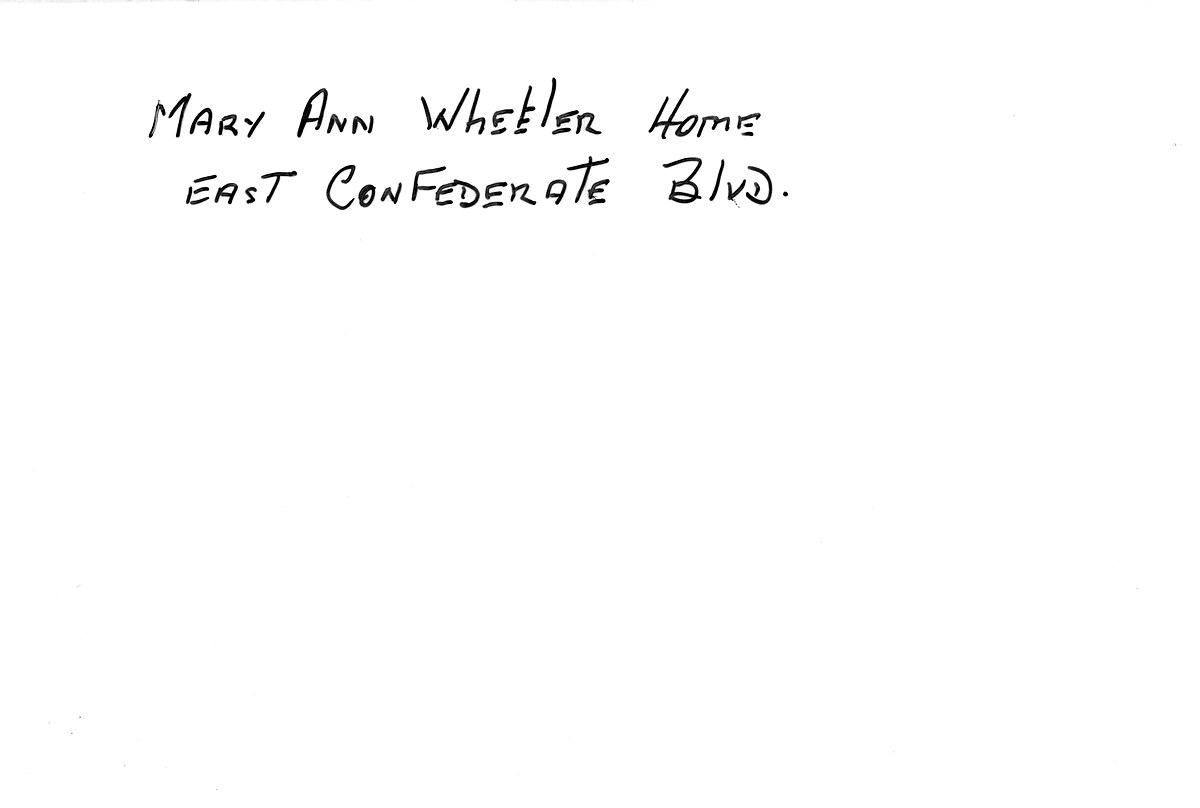 Mary Ann Wheeler Home
East Confederate Blvd.